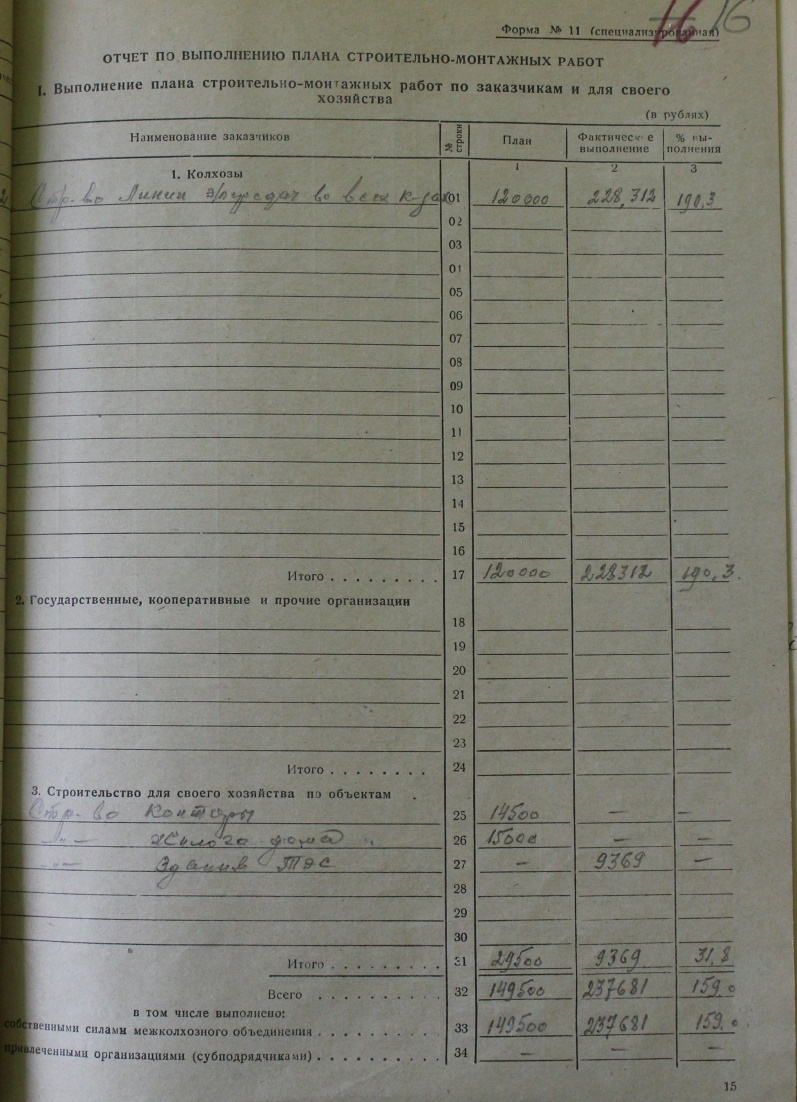 16 16
Форма № 11 (специализированная)
ОТЧЕТ ПО ВЫПОЛНЕНИЮ ПЛАНА СТРОИТЕЛЬНО-МОНТАЖНЫХ РАБОТ
I. Выполнение плана строительно-монтажных работ по заказчикам и для своего
хозяйства
(в рублях)
Наименование заказчиков № строки План Фактическое выполнение % вы-полнения
1 2 3
1. Колхозы
Стр-во Линии во всех к-зах 01 120000 228,312 190,3
02
03
04
05
06
07
08
09
10
11
12
13
14
15
16
Итого . . . . . . . . . 17 120000 228312 190,3.
2. Государственные, кооперативные и прочие организации
18
19
20
21
22
23
Итого . . . . . . . 24
3. Строительство для своего хозяйства по объектам
Стр-во Конторы 25 14500 — —
-"- Жилого дома 26 15000 — —
-"- Здания ТЭС 27 — 9369 —
28
29
30
Итого . . . . . . . . . 31 29500 9369 31,8
Всего . . . . . . . . . . 32 149500 237681 159,0
в том числе выполнено:
собственными силами межколхозного объединения . . . . . . . . . . 33 149500 237681 159,0
привлеченными организациями (субподрядчиками) . . . . . . . . . . 34 — — —
15